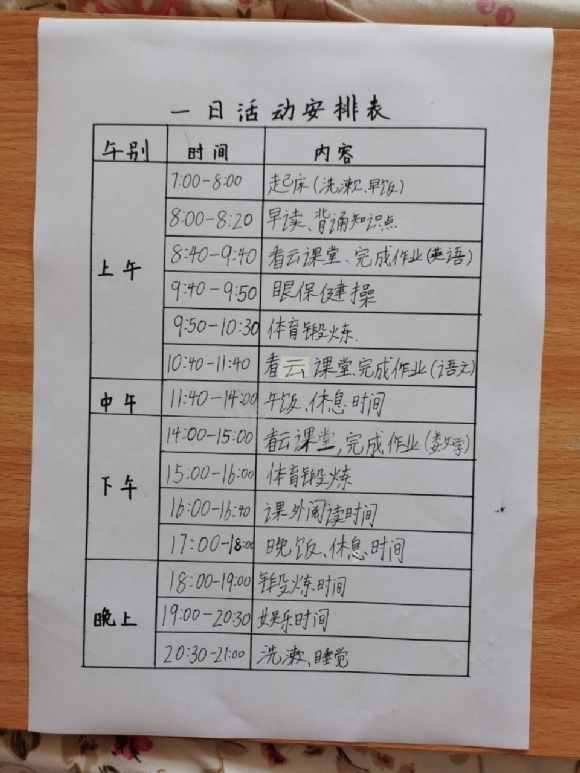 一日活动安排表
午别 时间 内容
7:00-8:00 起床(洗漱、早饭)
8:00-8:20 早读、背诵知识点
上午 8:40-9:40 看云课堂、完成作业(英语)
9:40-9:50 眼保健操
9:50-10:30 体育锻炼.
10:40-11:40 看云课堂、完成作业(语文)
中午 11:40-14:00 午饭、休息时间
14:00-15:00 看云课堂,完成作业(数学)
下午 15:00-16:00 体育锻炼
16:00-16:40 课外阅读时间
17:00-18:00 晚饭、休息时间
18:00-19:00 锻炼时间
晚上 19:00-20:30 娱乐时间
20:30-21:00 洗漱、睡觉